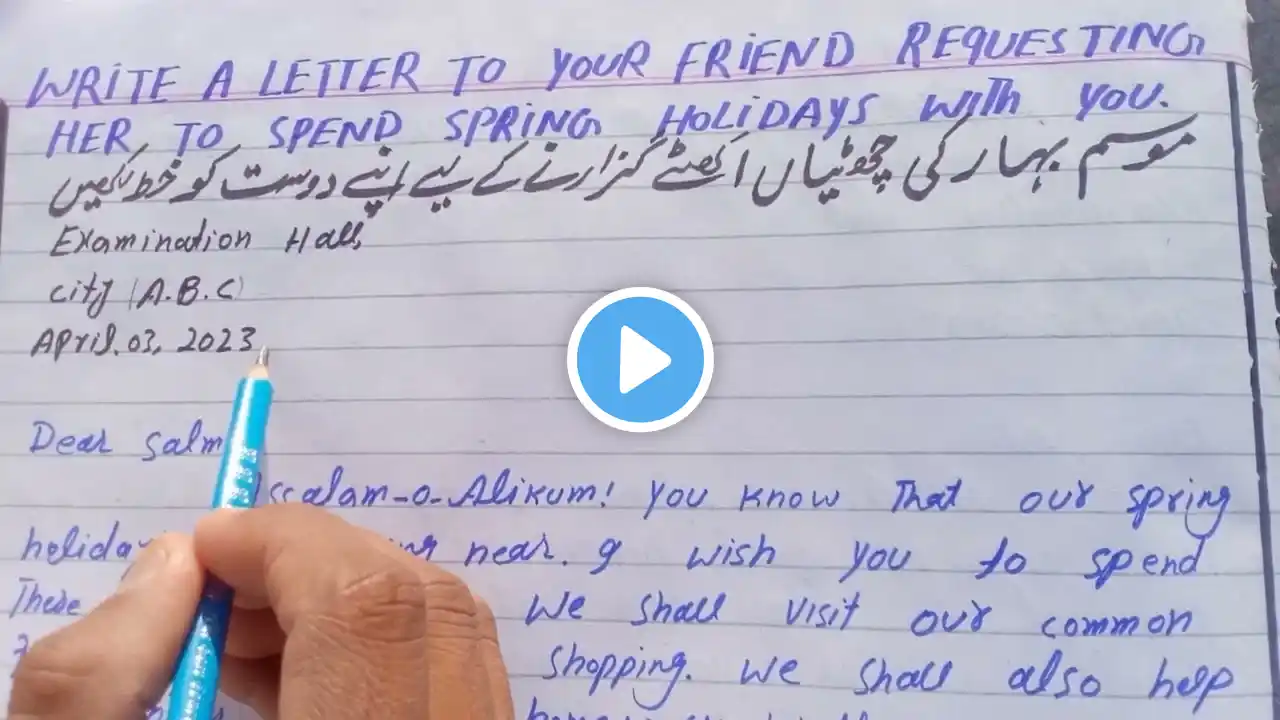 WRITE A LETTER TO YOUR FRIEND REQUESTING
HER TO SPEND SPRING HOLIDAYS WITH YOU.
موسم بہار کی چھٹیاں اکھٹے گزارنے کے لیے اپنے دوست کو خط لکھیں
Examination Hall,
City (A.B.C)
April.03, 2023
Dear Salm
ssalam-o-Alikum! You know That our spring
holiday near. I wish you to spend
These We shall visit our common
Shopping. We shall also help